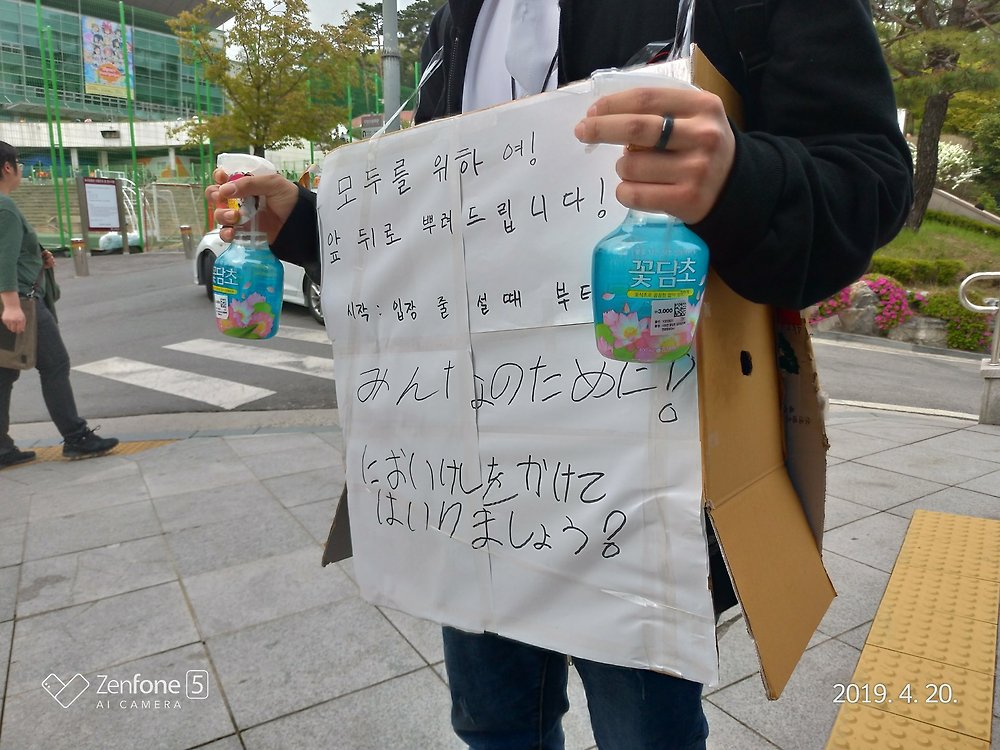 모두를 위하여!
앞 뒤로 뿌려드립니다!
시작: 입장 줄 설 때 부터
みんなのために!?
においけしをかけて
はいりましょう?
꽃담초
꽃담초
₩3,000
Zenfone 5
AI CAMERA
2019. 4. 20.